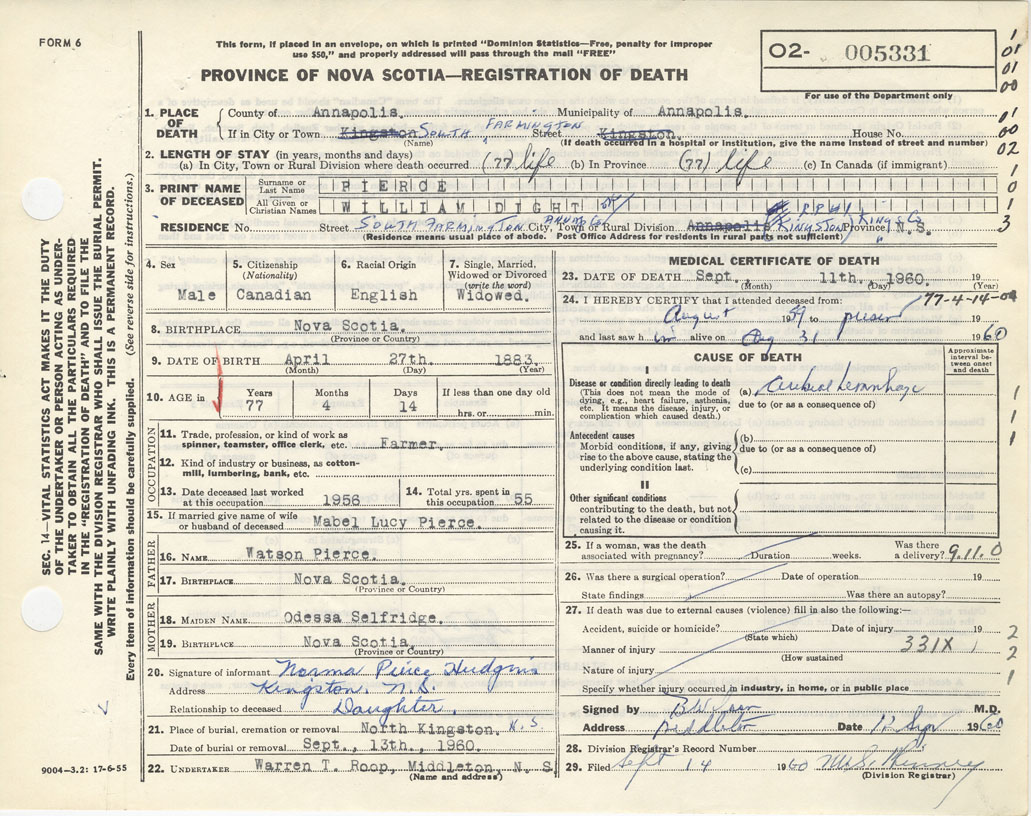 FORM 6
This form, if placed in an envelope, on which is printed "Dominion Statistics—Free, penalty for improper
use $50," and properly addressed will pass through the mail "FREE"
O2- 005331
For use of the Department only
PROVINCE OF NOVA SCOTIA—REGISTRATION OF DEATH
1. PLACE OF DEATH
County of Annapolis. Municipality of Annapolis.
If in City or Town Kingston SOUTH FARMINGTON Street Kingston. House No.
(Name) (If death occurred in a hospital or institution, give the name instead of street and number)
2. LENGTH OF STAY (in years, months and days)
(a) In City, Town or Rural Division where death occurred (77) life (b) In Province (77) life (c) In Canada (if immigrant)
3. PRINT NAME OF DECEASED
Surname or Last Name PIERCE
All Given or Christian Names WILLIAM DIGHT
RESIDENCE No. Street SOUTH FARMINGTON ANNAP Co City, Town or Rural Division Annapolis KINGSTON KINGS Co Province N.S.
(Residence means usual place of abode. Post Office Address for residents in rural parts not sufficient)
4. Sex
Male
5. Citizenship
(Nationality)
Canadian
6. Racial Origin
English
7. Single, Married, Widowed or Divorced
(write the word)
Widowed.
8. BIRTHPLACE Nova Scotia.
(Province or Country)
9. DATE OF BIRTH April 27th. 1883.
(Month) (Day) (Year)
10. AGE in Years 77 Months 4 Days 14 If less than one day old hrs. or min.
OCCUPATION
11. Trade, profession, or kind of work as
spinner, teamster, office clerk, etc. Farmer.
12. Kind of industry or business, as cotton-
mill, lumbering, bank, etc.
13. Date deceased last worked
at this occupation 1956
14. Total yrs. spent in
this occupation 55
15. If married give name of wife
or husband of deceased Mabel Lucy Pierce.
FATHER
16. NAME Watson Pierce.
17. BIRTHPLACE Nova Scotia.
(Province or Country)
MOTHER
18. MAIDEN NAME Odessa Selfridge.
19. BIRTHPLACE Nova Scotia.
(Province or Country)
20. Signature of informant Norma Pierce Hudgins
Address Kingston, N.S.
Relationship to deceased Daughter.
21. Place of burial, cremation or removal North Kingston. N.S
Date of burial or removal Sept., 13th., 1960.
22. UNDERTAKER Warren T. Roop, Middleton, N. S.
(Name and address)
MEDICAL CERTIFICATE OF DEATH
23. DATE OF DEATH Sept. 11th. 1960.
(Month) (Day) (Year)
77-4-14-00
24. I HEREBY CERTIFY that I attended deceased from:
August 1959 to present
and last saw h im alive on Aug 31 1960
CAUSE OF DEATH
Approximate interval between onset and death
I
Disease or condition directly leading to death
(This does not mean the mode of
dying, e.g., heart failure, asthenia,
etc. It means the disease, injury, or
complication which caused death.)
(a) Cerebral hemorrhage
due to (or as a consequence of)
Antecedent causes
Morbid conditions, if any, giving
rise to the above cause, stating the
underlying condition last.
(b)
due to (or as a consequence of)
(c)
II
Other significant conditions
contributing to the death, but not
related to the disease or condition
causing it.
25. If a woman, was the death
associated with pregnancy? Duration weeks. Was there a delivery? 9.11.0
26. Was there a surgical operation? Date of operation 19
State findings Was there an autopsy?
27. If death was due to external causes (violence) fill in also the following:—
Accident, suicide or homicide? Date of injury 19
(State which)
Manner of injury 331X
(How sustained
Nature of injury
Specify whether injury occurred in industry, in home, or in public place
Signed by M.D.
Address Middleton Date 12 Sep 1960
28. Division Registrar's Record Number
29. Filed Sept 14 1960
(Division Registrar)
SEC. 14—VITAL STATISTICS ACT MAKES IT THE DUTY
OF THE UNDERTAKER OR PERSON ACTING AS UNDER-
TAKER TO OBTAIN ALL THE PARTICULARS REQUIRED
IN THE "REGISTRATION OF DEATH" AND TO FILE THE
SAME WITH THE DIVISION REGISTRAR WHO SHALL ISSUE THE BURIAL PERMIT.
WRITE PLAINLY WITH UNFADING INK. THIS IS A PERMANENT RECORD.
Every item of information should be carefully supplied. (See reverse side for instructions.)
9004—3.2: 17-6-55
1
01
01
00
01
00
02
1
0
1
3
1
1
1
2
2
1